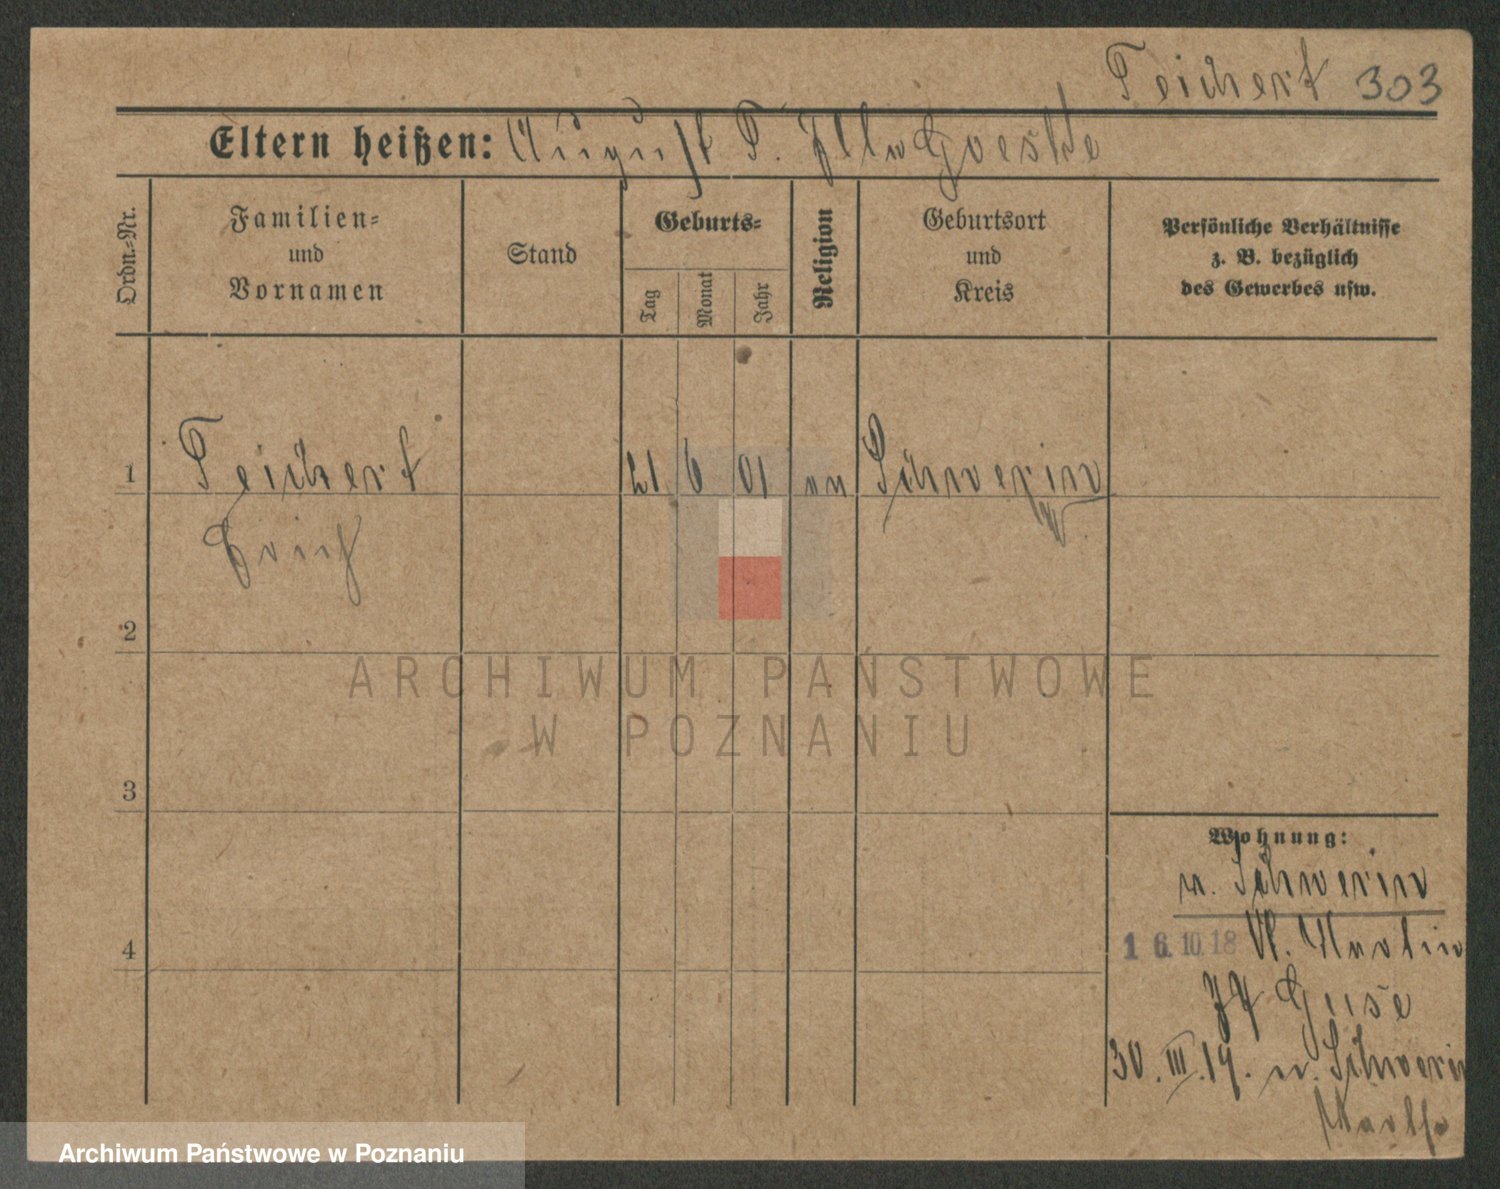 Teichert 303
Eltern heißen: August T. Goeske
Ordn.-Nr.
Familien-
und
Vornamen
Stand
Geburts-
Tag
Monat
Jahr
Religion
Geburtsort
und
Kreis
Persönliche Verhältnisse
z. B. bezüglich
des Gewerbes usw.
1 Teichert 21 6 01 Schwerin
Erich W
2
3
4
Wohnung:
n. Schwerin
16.10.18 St. Martin
Guse
30.III.19. n. Schwerin
Warthe
ARCHIWUM PAŃSTWOWE
W POZNANIU
Archiwum Państwowe w Poznaniu